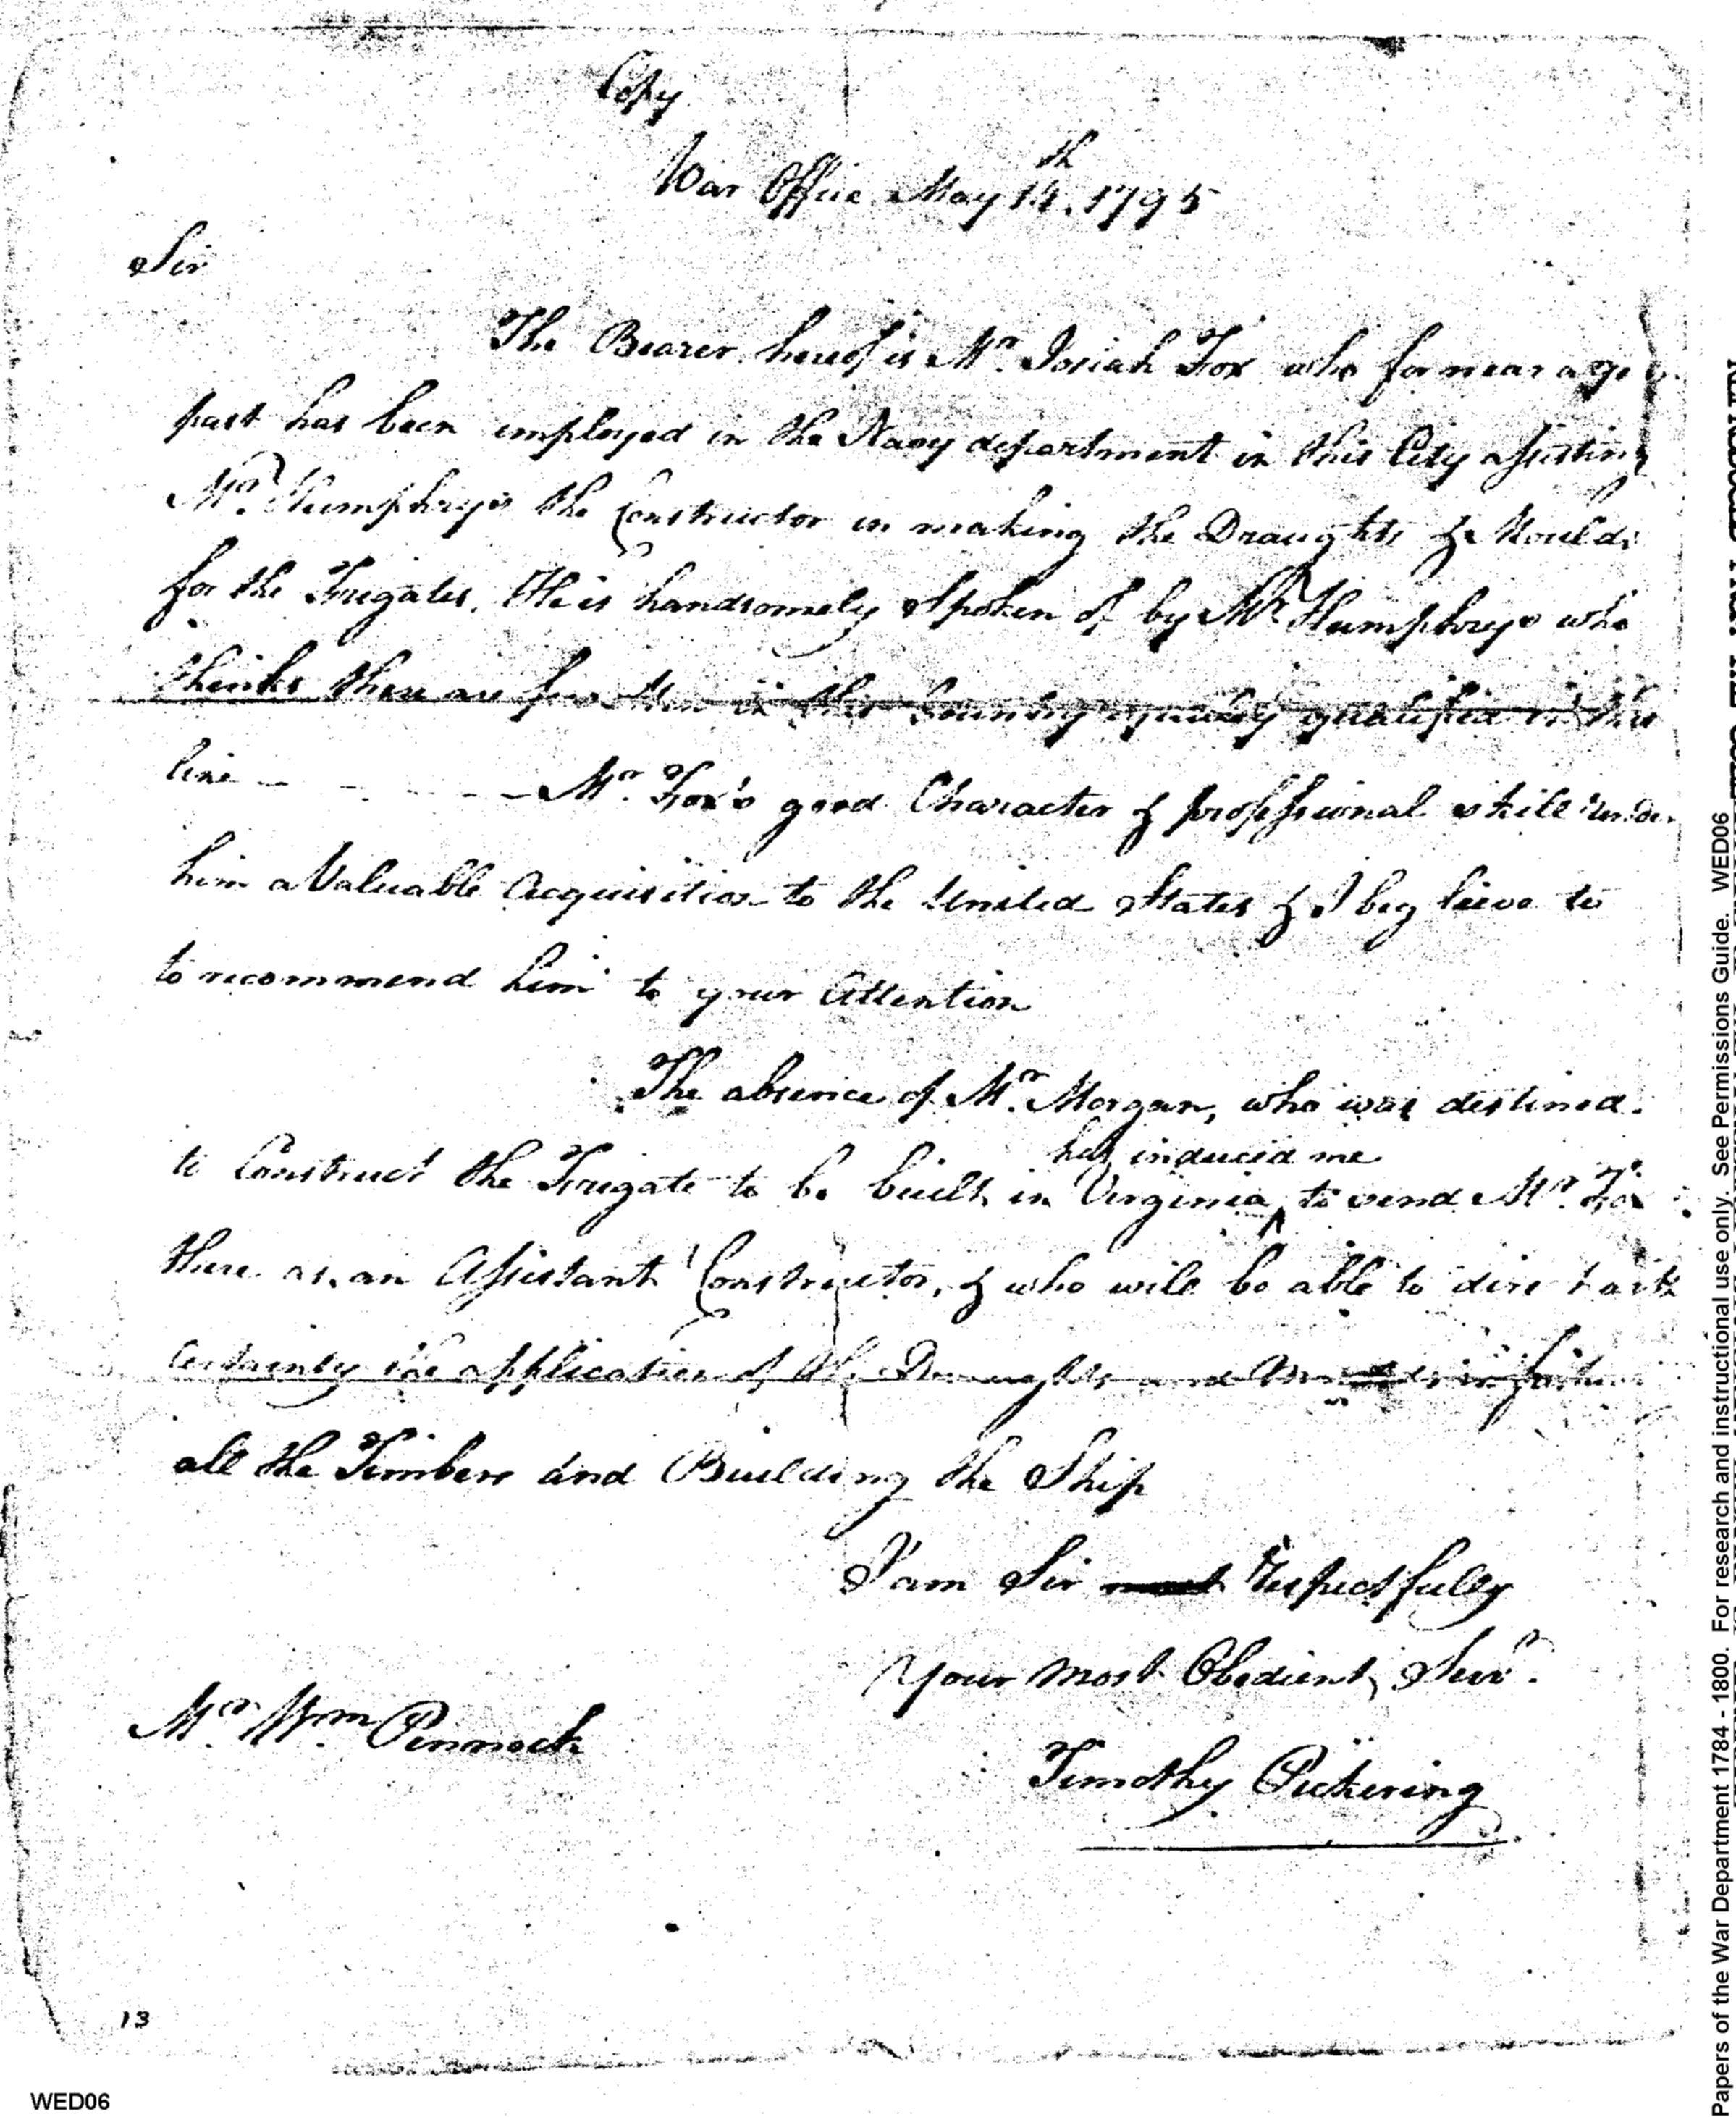 Copy
War Office May 14th. 1795
Sir
The Bearer hereof is Mr. Josiah Fox who for near a
past has been employed in the Navy department in this City assisting
Mr. Humphreys the Constructor in making the Draughts & Moulds
for the Frigates. He is handsomely Spoken of by Mr Humphreys who
thinks there are few Men in this Country equally qualified in this
line - - - - - Mr. Fox's good Character & professional skill render
him a Valuable Acquisition to the United States & I beg lieve to
to recommend him to your Attention
The absence of Mr. Morgan, who was destined
has induced me
to Construct the Frigate to be built in Virginia ‸ to send Mr. Fox
there as an Assistant Constructor, & who will be able to direct with
Certainty the application of the Draughts and Moulds in
all the Timbers and Building the Ship
I am Sir most Respectfully
Your most Obedient Servt.
Mr. Wm. Pennock
Timothy Pickering
13
WED06
Papers of the War Department 1784 - 1800. For research and instructional use only. See Permissions Guide. WED06